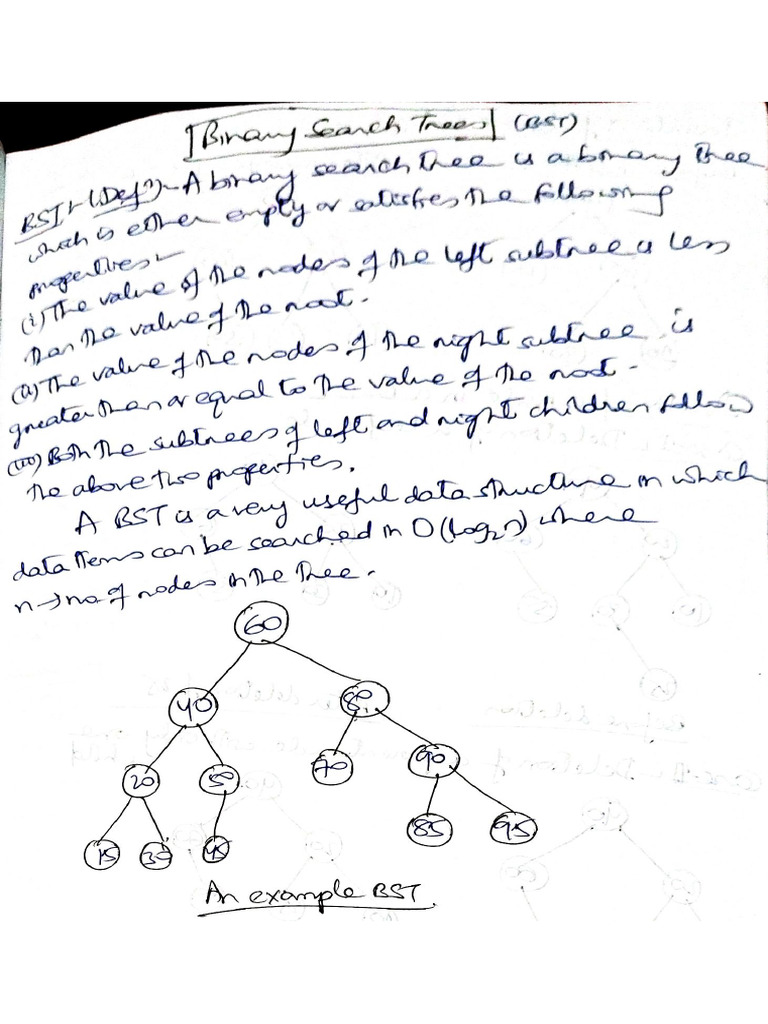 Binary Search Trees (BST)
BST:- (Defn):- A binary search tree is a binary tree
which is either empty or satisfies the following
properties:-
(i) The value of the nodes of the left subtree is less
than the value of the root.
(ii) The value of the nodes of the right subtree is
greater than or equal to the value of the root.
(iii) Both the subtrees of left and right children follow
the above two properties.
A BST is a very useful data structure in which
data items can be searched in O(log2n) where
n → no. of nodes in the tree.
60
40 80
20 50 70 90
15 30 45 85 95
An example BST